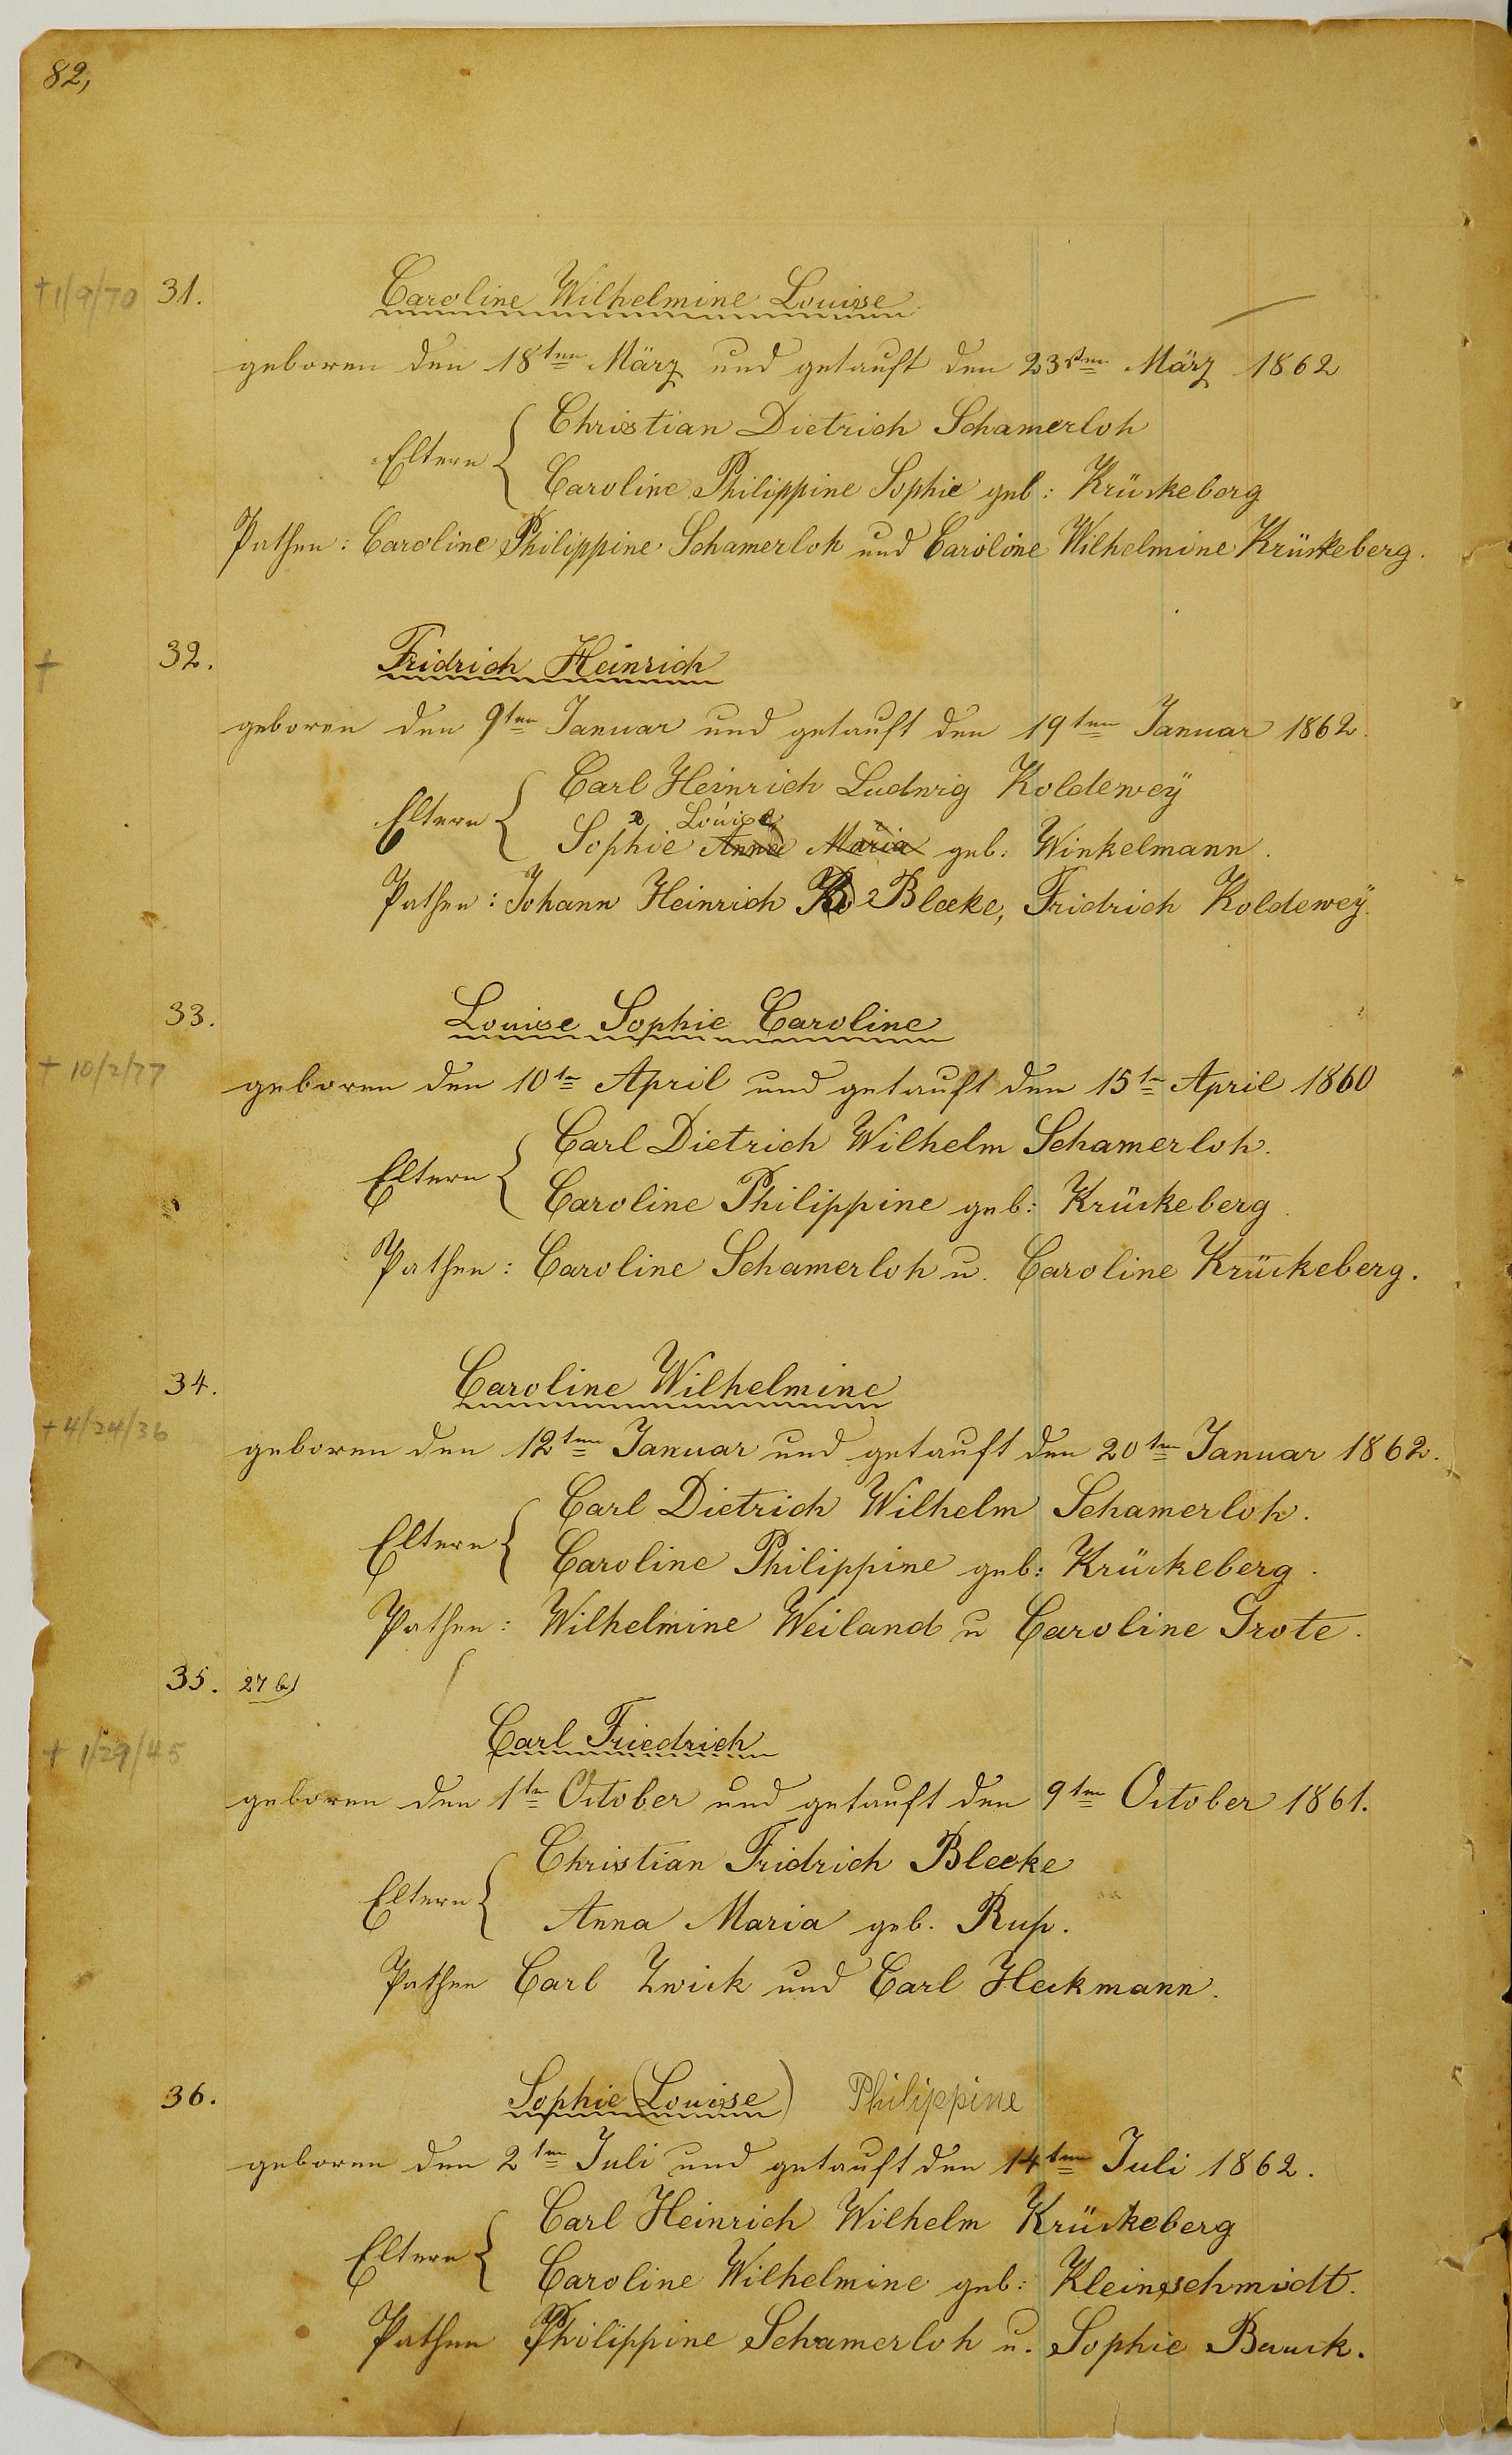 82,
+1/9/70 31. Caroline Wilhelmine Louise
geboren den 18ten März und getauft den 23sten März 1862
Christian Dietrich Schamerloh
Eltern
Caroline Philippine Sophie geb: Krückeberg
Pathen: Caroline Philippine Schamerloh und Caroline Wilhelmine Krückeberg.
+ 32. Fridrich Heinrich
geboren den 9ten Januar und getauft den 19ten Januar 1862.
Carl Heinrich Ludwig Koldeweÿ
Eltern
Louise
Sophie Anna Maria geb: Winkelmann.
Pathen: Johann Heinrich Bleeke, Fridrich Koldeweÿ.
33. Louise Sophie Caroline
+ 10/2/77
geboren den 10tn April und getauft den 15tn April 1860
Carl Dietrich Wilhelm Schamerloh.
Eltern
Caroline Philippine geb: Krückeberg.
Pathen: Caroline Schamerloh u. Caroline Krückeberg.
34. Caroline Wilhelmine
+4/24/36
geboren den 12ten Januar und getauft den 20ten Januar 1862.
Carl Dietrich Wilhelm Schamerloh.
Eltern
Caroline Philippine geb: Krückeberg.
Pathen: Wilhelmine Weiland u Caroline Grote.
35. 27 b)
Carl Friedrich
+ 1/29/45
geboren den 1tn October und getauft den 9ten October 1861.
Christian Fridrich Bleeke
Eltern
Anna Maria geb. Rup.
Pathen Carl Zwick und Carl Heckmann.
36. Sophie (Louise) Philippine
geboren den 2ten Juli und getauft den 14ten Juli 1862.
Carl Heinrich Wilhelm Krückeberg
Eltern
Caroline Wilhelmine geb: Kleinschmidt.
Pathen Philippine Schamerloh u. Sophie Bauck.